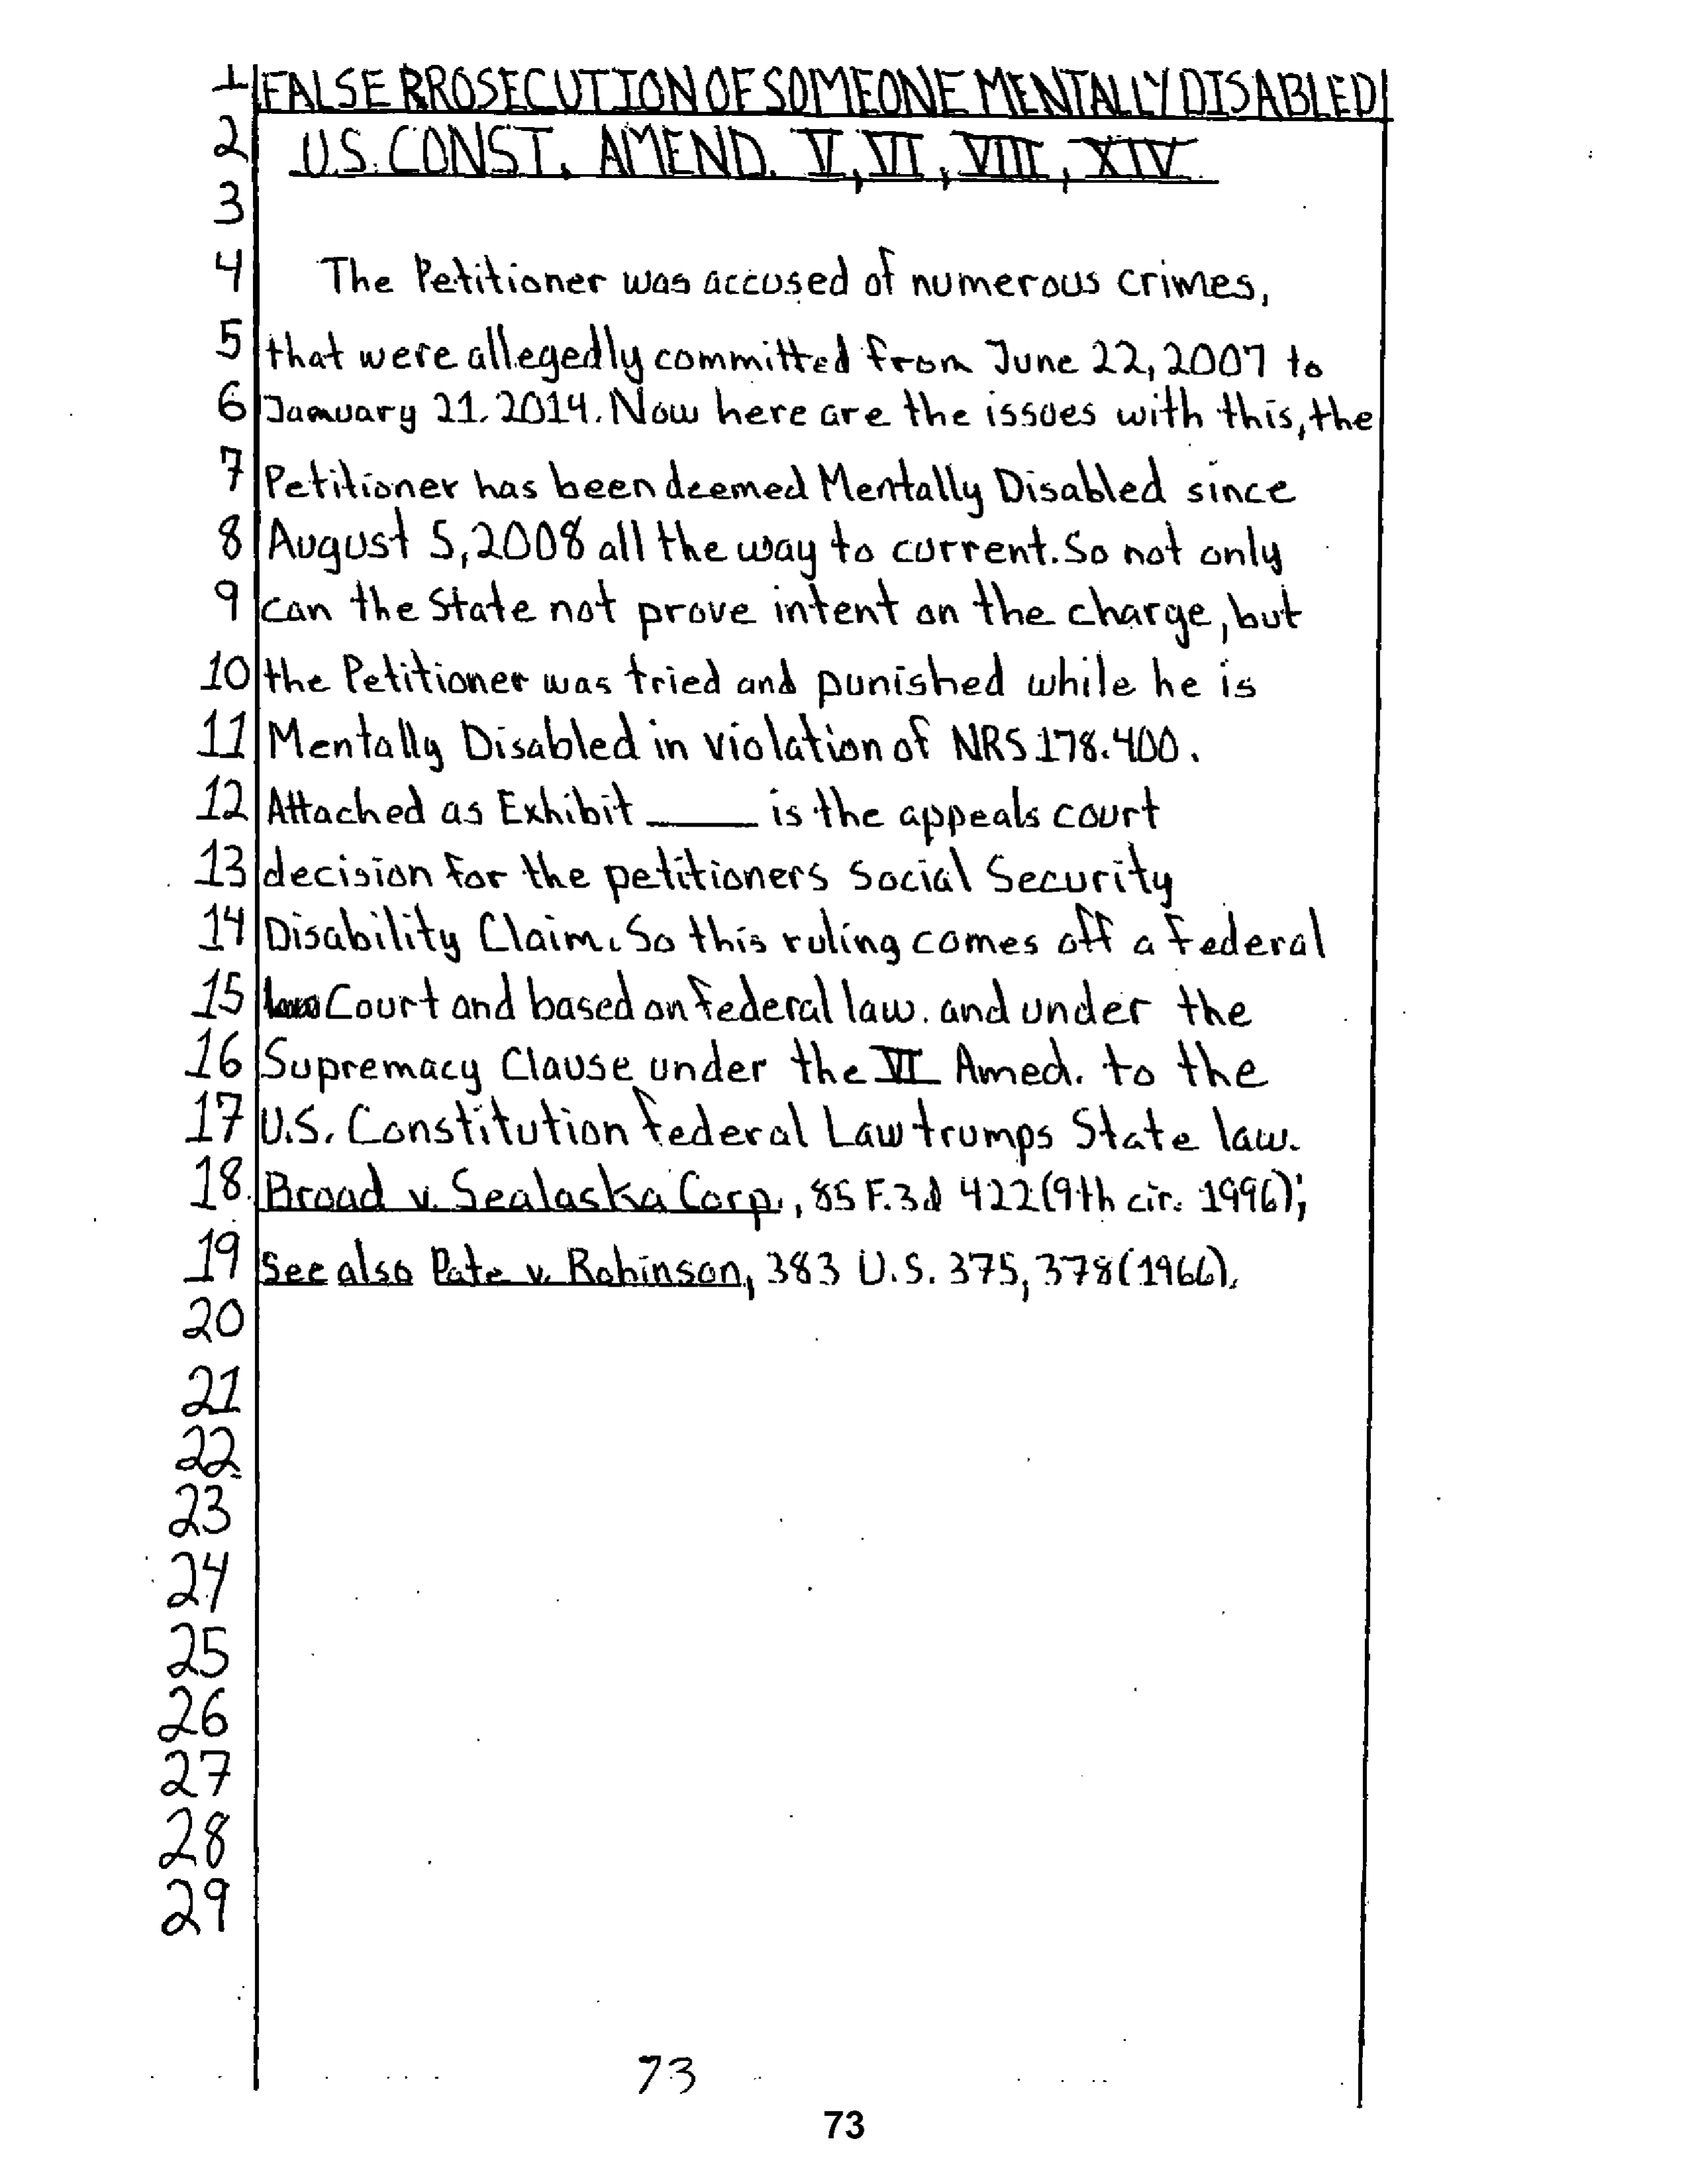 1 FALSE PROSECUTION OF SOMEONE MENTALLY DISABLED
2 U.S. CONST. AMEND. V, VI, VIII, XIV
3
4 The Petitioner was accused of numerous crimes,
5 that were allegedly committed from June 22, 2007 to
6 January 21. 2014. Now here are the issues with this, the
7 Petitioner has been deemed Mentally Disabled since
8 August 5, 2008 all the way to current. So not only
9 can the State not prove intent on the charge, but
10 the Petitioner was tried and punished while he is
11 Mentally Disabled in violation of NRS 178.400.
12 Attached as Exhibit ____ is the appeals court
13 decision for the petitioners Social Security
14 Disability Claim. So this ruling comes off a Federal
15 Court and based on Federal law. and under the
16 Supremacy Clause under the VI Amed. to the
17 U.S. Constitution Federal Law trumps State law.
18. Broad v. Sealaska Corp., 85 F.3d 422 (9th cir. 1996);
19 See also Pate v. Robinson, 383 U.S. 375, 378 (1966).
20
21
22
23
24
25
26
27
28
29
73
73